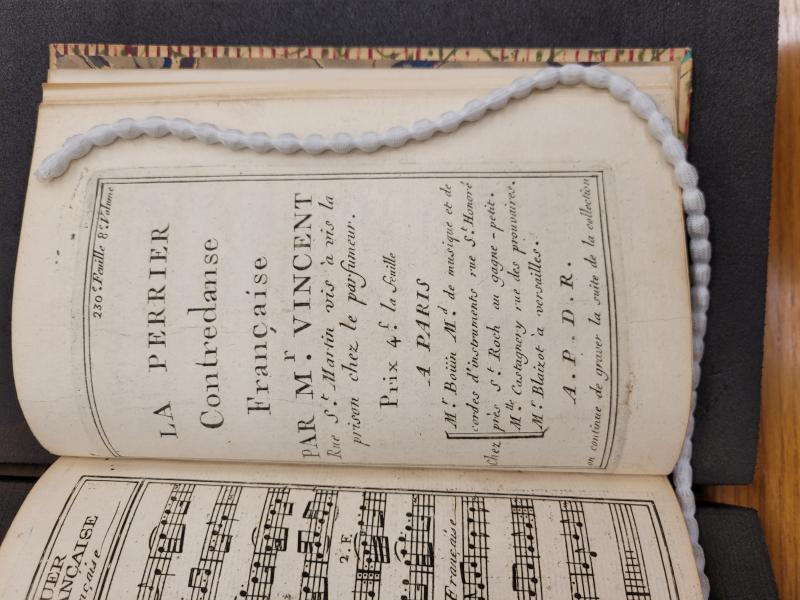 230e. Feuille 8e. Volume
LA PERRIER
Contredanse
Française
PAR Mr. VINCENT
Rue St. Martin vis à vis la
prison chez le parfumeur.
Prix 4f. la feuille
A PARIS
Chez
Mr. Boüin Md. de musique et de
cordes d'instruments rue St. Honoré
près St. Roch au gagne-petit.
Mlle. Castagnery rue des prouvaires.
Mr. Blaizot à versailles.
A. P. D. R.
on continue de graver la suite de la collection
2. F.
Française